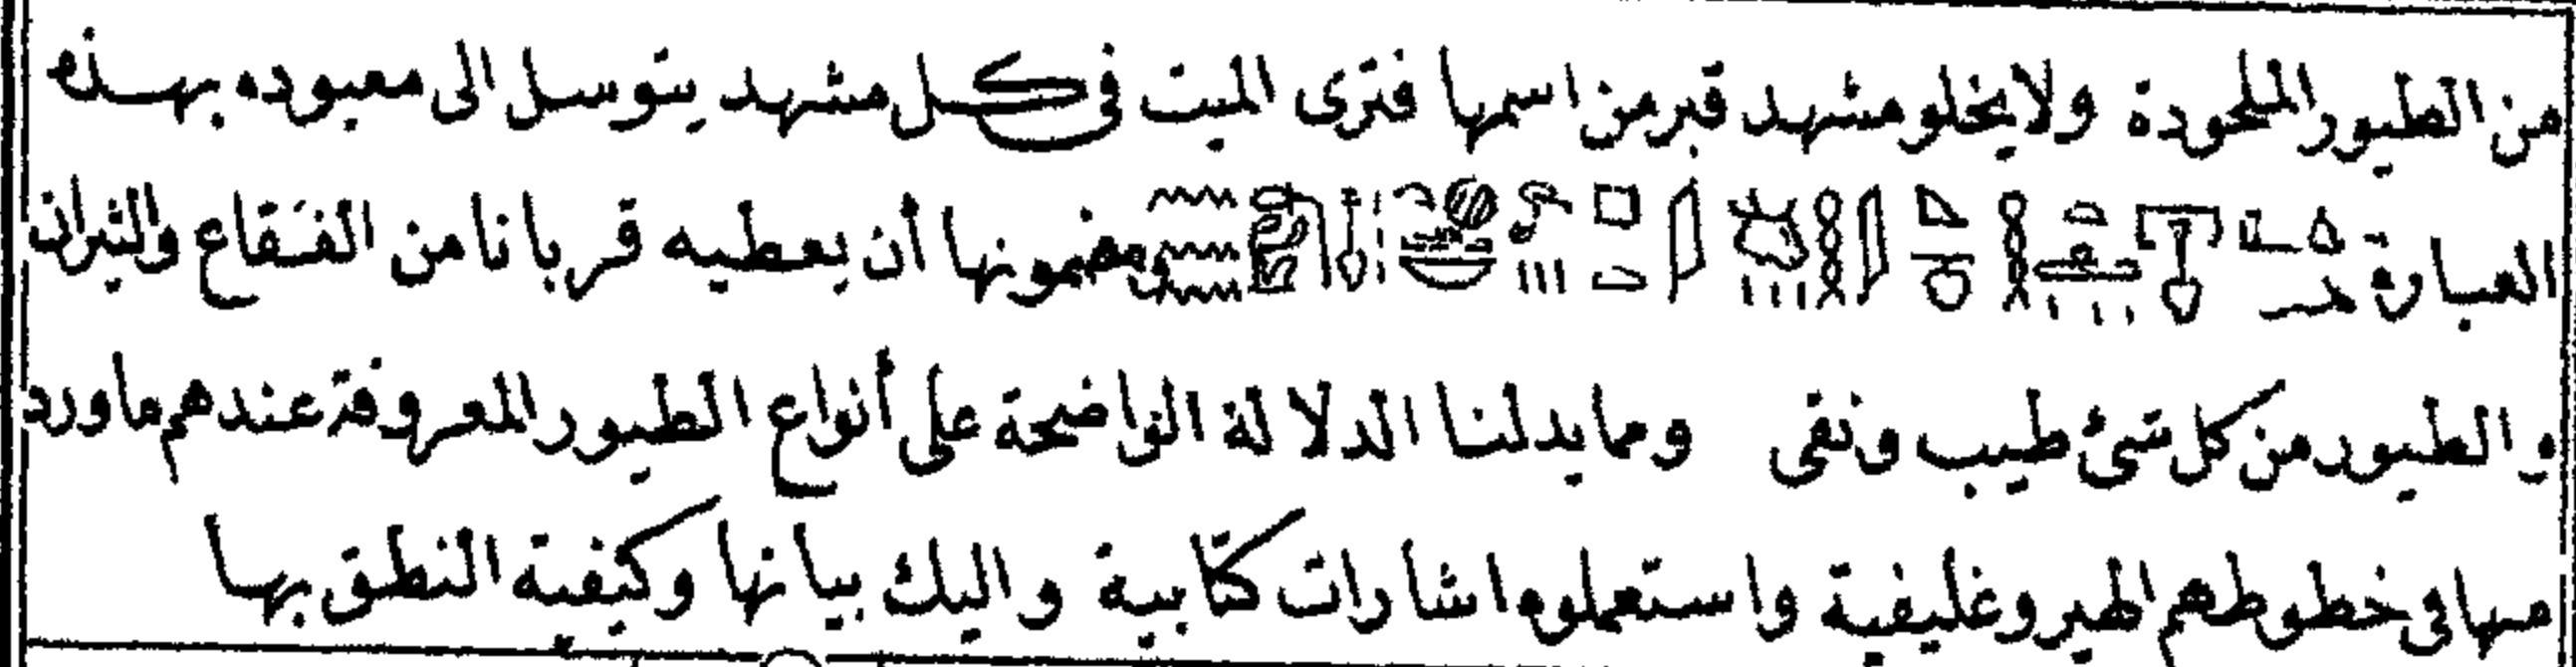 من الطيور الملحودة ولا يخلو مشهد قبر من اسمها فترى الميت فى كل مشهد يتوسل الى معبوده بهذه
العبارة ومضمونها أن يعطيه قربانا من الفقاع والثيران
والطيور من كل شئ طيب ونقى ومما يدلنا الدلالة الواضحة على أنواع الطيور المعروفة عندهم ما ورد
منها فى خطوطهم الهيروغليفية واستعملوه اشارات كتابية واليك بيانها وكيفية النطق بها